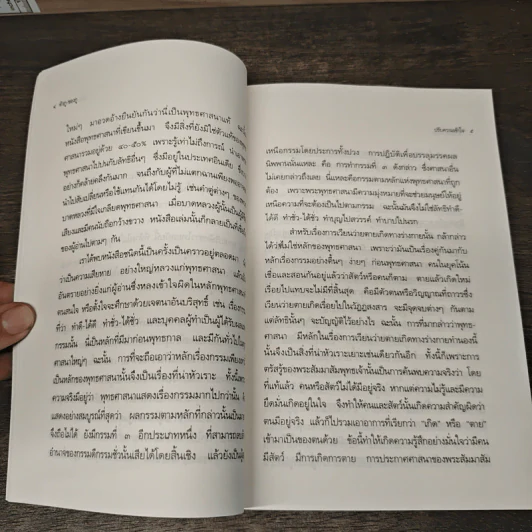 ใหม่ๆ มาอวดอ้างยืนยันกันว่านี่เป็นพุทธศาสนาแท้
หนังสือพุทธศาสนาที่เขียนขึ้นมา จึงมีสิ่งที่ยังมิใช่ตัวแท้
ศาสนารวมอยู่ด้วย ๔๐-๕๐% เพราะรู้เท่าไม่ถึงการณ์
พุทธศาสนาไปปนกับลัทธิอื่นๆ ซึ่งมีอยู่ในประเทศอินเดีย
อย่างก็คล้ายคลึงกันมาก จนถึงกับผู้ที่ไม่แตกฉานเพียงพอ
นำไปสับเปลี่ยนหรือใช้แทนกันได้โดยไม่รู้ เช่นคำคู่ต่างๆ ของ
บาดหลวงที่มีใจเกลียดพุทธศาสนา เมื่อบาดหลวงผู้นั้นเป็นผู้
เสียงและมีคนนับถือกว้างขวาง หนังสือเล่มนั้นก็กลายเป็นสิ่ง
ของผู้อ่านไปตามๆ กัน
เราได้พบหนังสือชนิดนี้เป็นครั้งเป็นคราวอยู่ตลอดมา
ว่าเป็นความเสียหาย อย่างใหญ่หลวงแก่พุทธศาสนา
อันตรายอย่างยิ่งแก่ผู้อ่านซึ่งหลงเข้าใจผิดในหลักพุทธศาสนา
ตนสนใจ หรือตั้งใจจะศึกษาด้วยเจตนาอันบริสุทธิ์ เช่น เรื่อง
ที่ว่า ทำดีได้ดี ทำชั่วได้ชั่ว และบุคคลผู้ทำเป็นผู้ได้รับผล
กรรมนั้น นี่เป็นหลักที่มีมาก่อนพุทธกาล และมีกันทั่วไปใน
ศาสนาใหญ่ๆ ฉะนั้น การที่จะถือเอาว่าหลักเรื่องกรรมเพียง
เป็นหลักของพุทธศาสนานั้นจึงเป็นเรื่องที่น่าหัวเราะ ทั้งนี้
ความจริงมีอยู่ว่า พุทธศาสนาแสดงเรื่องกรรมมากไปกว่านั้น
แสดงอย่างสมบูรณ์ที่สุดว่า ผลกรรมตามหลักที่กล่าวนั้นเป็น
จึงถือไม่ได้ ยังมีกรรมที่ ๓ อีกประเภทหนึ่ง ที่สามารถลบ
อำนาจของกรรมดีกรรมชั่วนั้นเสียได้โดยสิ้นเชิง แล้วยังเป็น
เหนือกรรมโดยประการทั้งปวง การปฏิบัติเพื่อบรรลุมรรคผล
นิพพานนั่นแหละ คือ การทำกรรมที่ ๓ ดังกล่าว ซึ่งศาสนาอื่น
ไม่เคยกล่าวถึงเลย นี่แหละคือกรรมตามหลักแห่งพุทธศาสนาที่ถูก
ต้อง เพราะพระพุทธศาสนามีความมุ่งหมายที่จะช่วยมนุษย์ให้อยู่
เหนือความที่จะต้องเป็นไปตามกรรม ฉะนั้นมันจึงไม่ใช่ลัทธิทำดี-
ได้ดี ทำชั่ว-ได้ชั่ว ทำบุญไปสวรรค์ ทำบาปไปนรก
สำหรับเรื่องการเวียนว่ายตายเกิดทางร่างกายนั้น กล้ากล่าว
ได้ว่ายังไม่ใช่หลักของพุทธศาสนา เพราะว่ามันเป็นเรื่องคู่กันมากับ
หลักเรื่องกรรมอย่างตื้นๆ ง่ายๆ ก่อนพุทธศาสนา คนในยุคโน้น
เชื่อและสอนกันอยู่แล้วว่าสัตว์หรือคนก็ตาม ตายแล้วเกิดใหม่
เรื่อยไปแทบจะไม่มีที่สิ้นสุด คือมีตัวตนหรือวิญญาณที่ถาวรซึ่ง
เวียนว่ายตายเกิดเรื่อยไปในวัฏฏสงสาร จะมีจุดจบต่างๆ กันตาม
แต่ลัทธินั้นๆ จะบัญญัติไว้อย่างไร ฉะนั้น การที่มากล่าวว่าพุทธ-
ศาสนา มีหลักในเรื่องการเวียนว่ายตายเกิดทางร่างกายทำนองนี้
นั้นจึงเป็นสิ่งที่น่าหัวเราะเยาะเช่นเดียวกันอีก ทั้งนี้ก็เพราะการ
ตรัสรู้ของพระสัมมาสัมพุทธเจ้านั้นเป็นการค้นพบความจริงว่า โดย
ที่แท้แล้ว คนหรือสัตว์ไม่ได้มีอยู่จริง หากแต่ความไม่รู้และมีความ
ยึดมั่นเกิดอยู่ในใจ จึงทำให้คนและสัตว์นั้นเกิดความสำคัญผิดว่า
ตนมีอยู่จริง แล้วก็ไปรวมเอาอาการที่เรียกว่า "เกิด" หรือ "ตาย"
เข้ามาเป็นของตนด้วย ข้อนี้ทำให้เกิดความรู้สึกอย่างมั่นใจว่ามีคน
มีสัตว์ มีการเกิดการตาย การประกาศศาสนาของพระสัมมาสัม